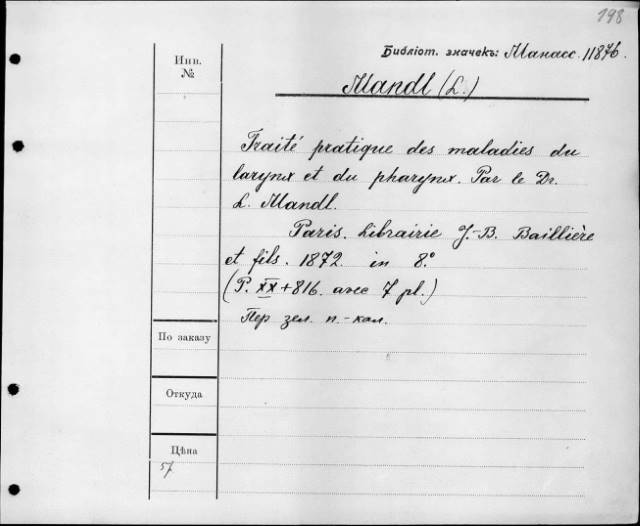 198
Библіот. значекъ: Манасс. 11876.
Инв.
№
Mandl (L.)
Traité pratique des maladies du
larynx et du pharynx. Par le Dr.
L. Mandl.
Paris. Librairie J.-B. Baillière
et fils. 1872. in 8.°
(P. XX + 816. avec 7 pl.)
Пер зел. п.-кол.
По заказу
Откуда
Цѣна